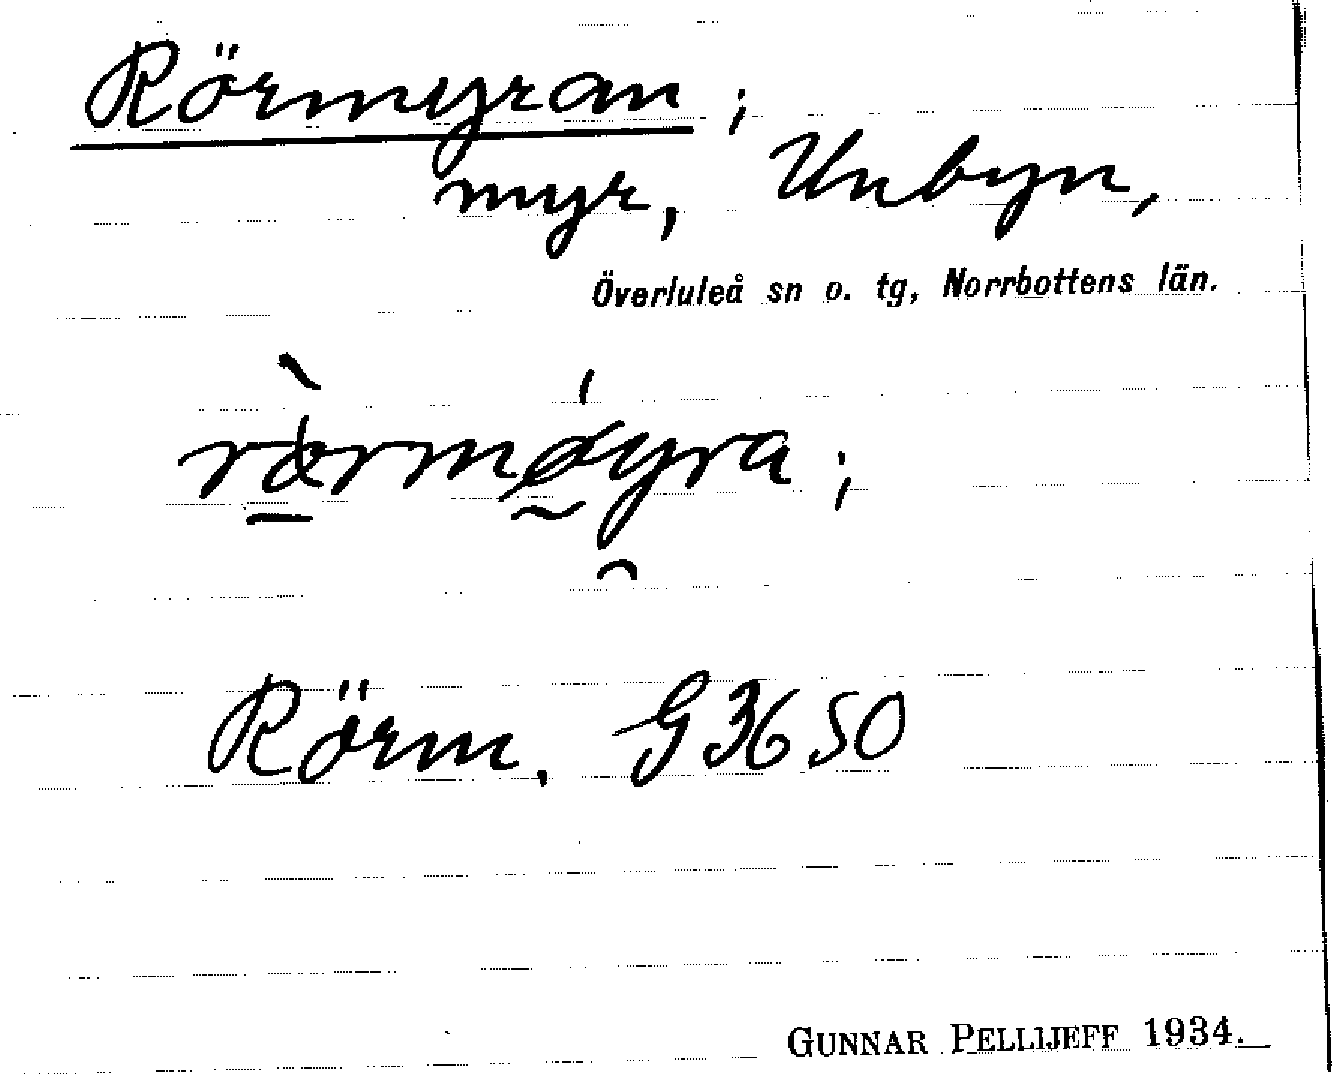 Rörmyran ;
myr, Unbyn,
Överluleå sn o. tg, Norrbottens län.
Rörm. G3650
GUNNAR PELLIJEFF 1934.